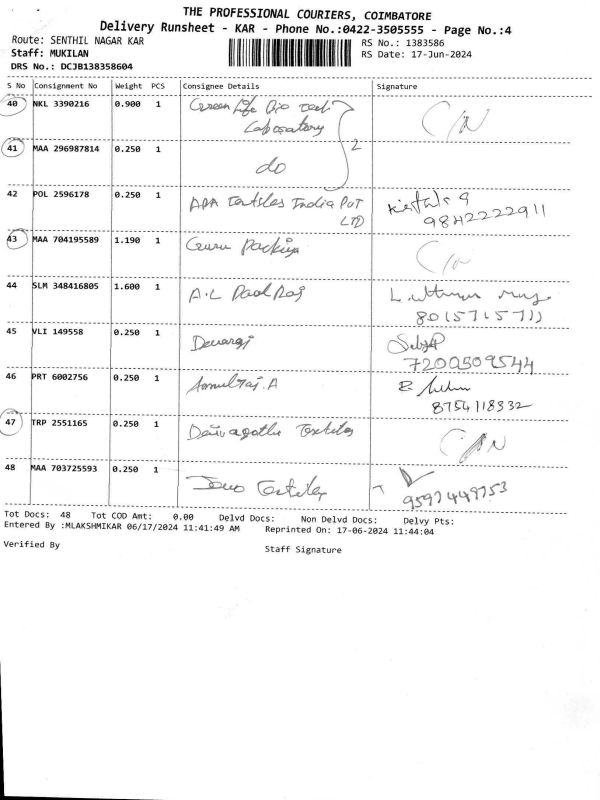 THE PROFESSIONAL COURIERS, COIMBATORE
Delivery Runsheet - KAR - Phone No.:0422-3505555 - Page No.:4
Route: SENTHIL NAGAR KAR
RS No.: 1383586
Staff: MUKILAN
RS Date: 17-Jun-2024
DRS No.: DCJB138358604
S No Consignment No Weight PCS Consignee Details Signature
40 NKL 3390216 0.900 1 Green Life Bio Tech
Laboratory
C/N
2
41 MAA 296987814 0.250 1
do
42 POL 2596178 0.250 1 APA Textiles India PVT
LTD
9842222911
43 MAA 704195589 1.190 1 Guru Packiya C/N
44 SLM 348416805 1.600 1 A.L Paul Raj
8015715711
45 VLI 149558 0.250 1 Devaraj
7200509544
46 PRT 6002756 0.250 1 A
8754118332
47 TRP 2551165 0.250 1 Textiles C/N
48 MAA 703725593 0.250 1 Textiles
9597449753
Tot Docs: 48 Tot COD Amt: 0.00 Delvd Docs: Non Delvd Docs: Delvy Pts:
Entered By :MLAKSHMIKAR 06/17/2024 11:41:49 AM Reprinted On: 17-06-2024 11:44:04
Verified By
Staff Signature